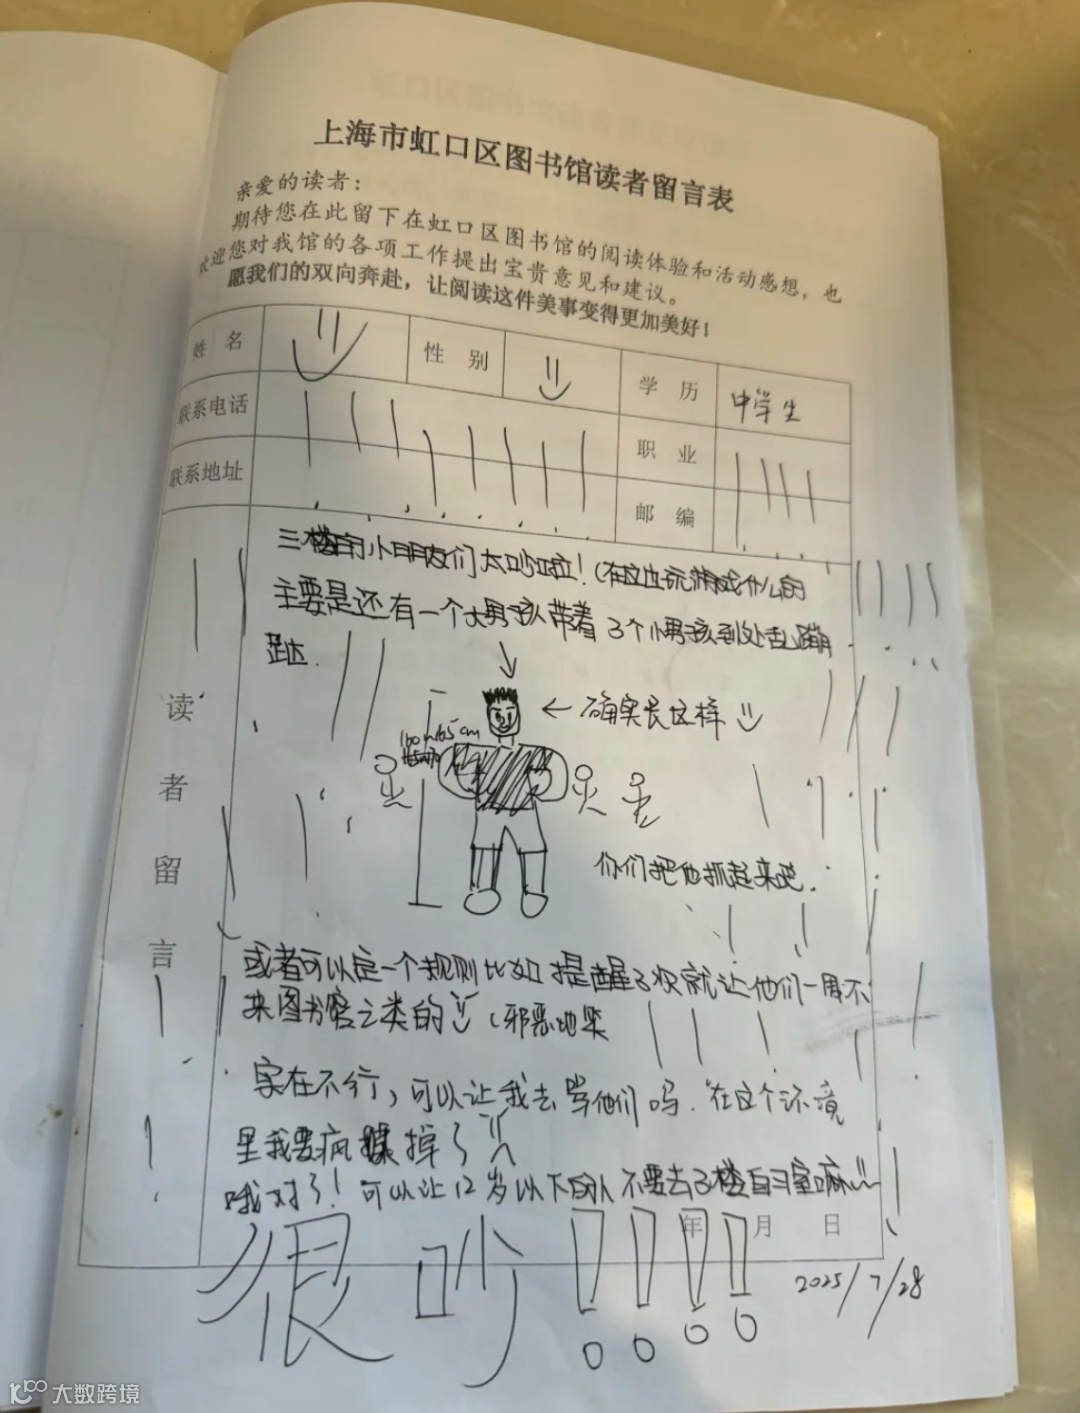 上海市虹口区图书馆读者留言表
亲爱的读者：
期待您在此留下在虹口区图书馆的阅读体验和活动感想，也
欢迎您对我馆的各项工作提出宝贵意见和建议。
愿我们的双向奔赴，让阅读这件美事变得更加美好！
姓 名 性 别 学 历 中学生
联系电话 职 业
联系地址 邮 编
读者留言
三楼的小朋友们太吵啦！（在这边玩游戏什么的
主要是还有一个大男孩带着3个小男孩到处乱蹦
跶.
← 确实长这样
160~165cm
你们把他抓起来吧.
或者可以定一个规则比如提醒3次就让他们一周不
来图书馆之类的（邪恶地笑
实在不行，可以让我去骂他们吗.在这个环境
里我要疯掉了
哦对了！可以让12岁以下的人不要去3楼自习室嘛
年 月 日
很吵！！！！
2025/7/28
大数跨境